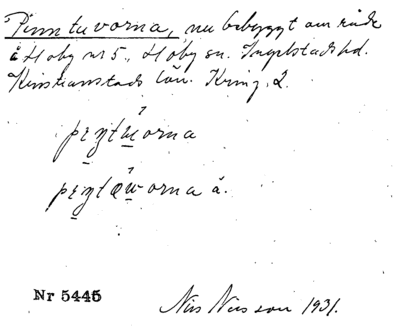 Pinntuvorna, nu bebyggt område
i Hoby nr 5., Hoby sn. Ingelstads hd.
Kristianstads län. Kring. 2.
Nr 5445
Nils Nilsson 1931.